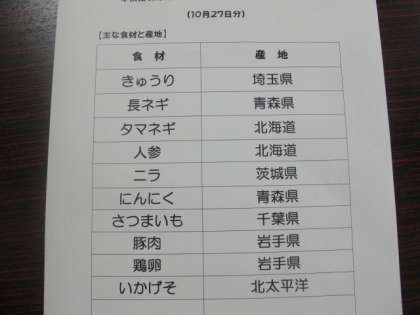 (10月27日分)
【主な食材と産地】
食 材 産 地
きゅうり 埼玉県
長ネギ 青森県
タマネギ 北海道
人参 北海道
ニラ 茨城県
にんにく 青森県
さつまいも 千葉県
豚肉 岩手県
鶏卵 岩手県
いかげそ 北太平洋